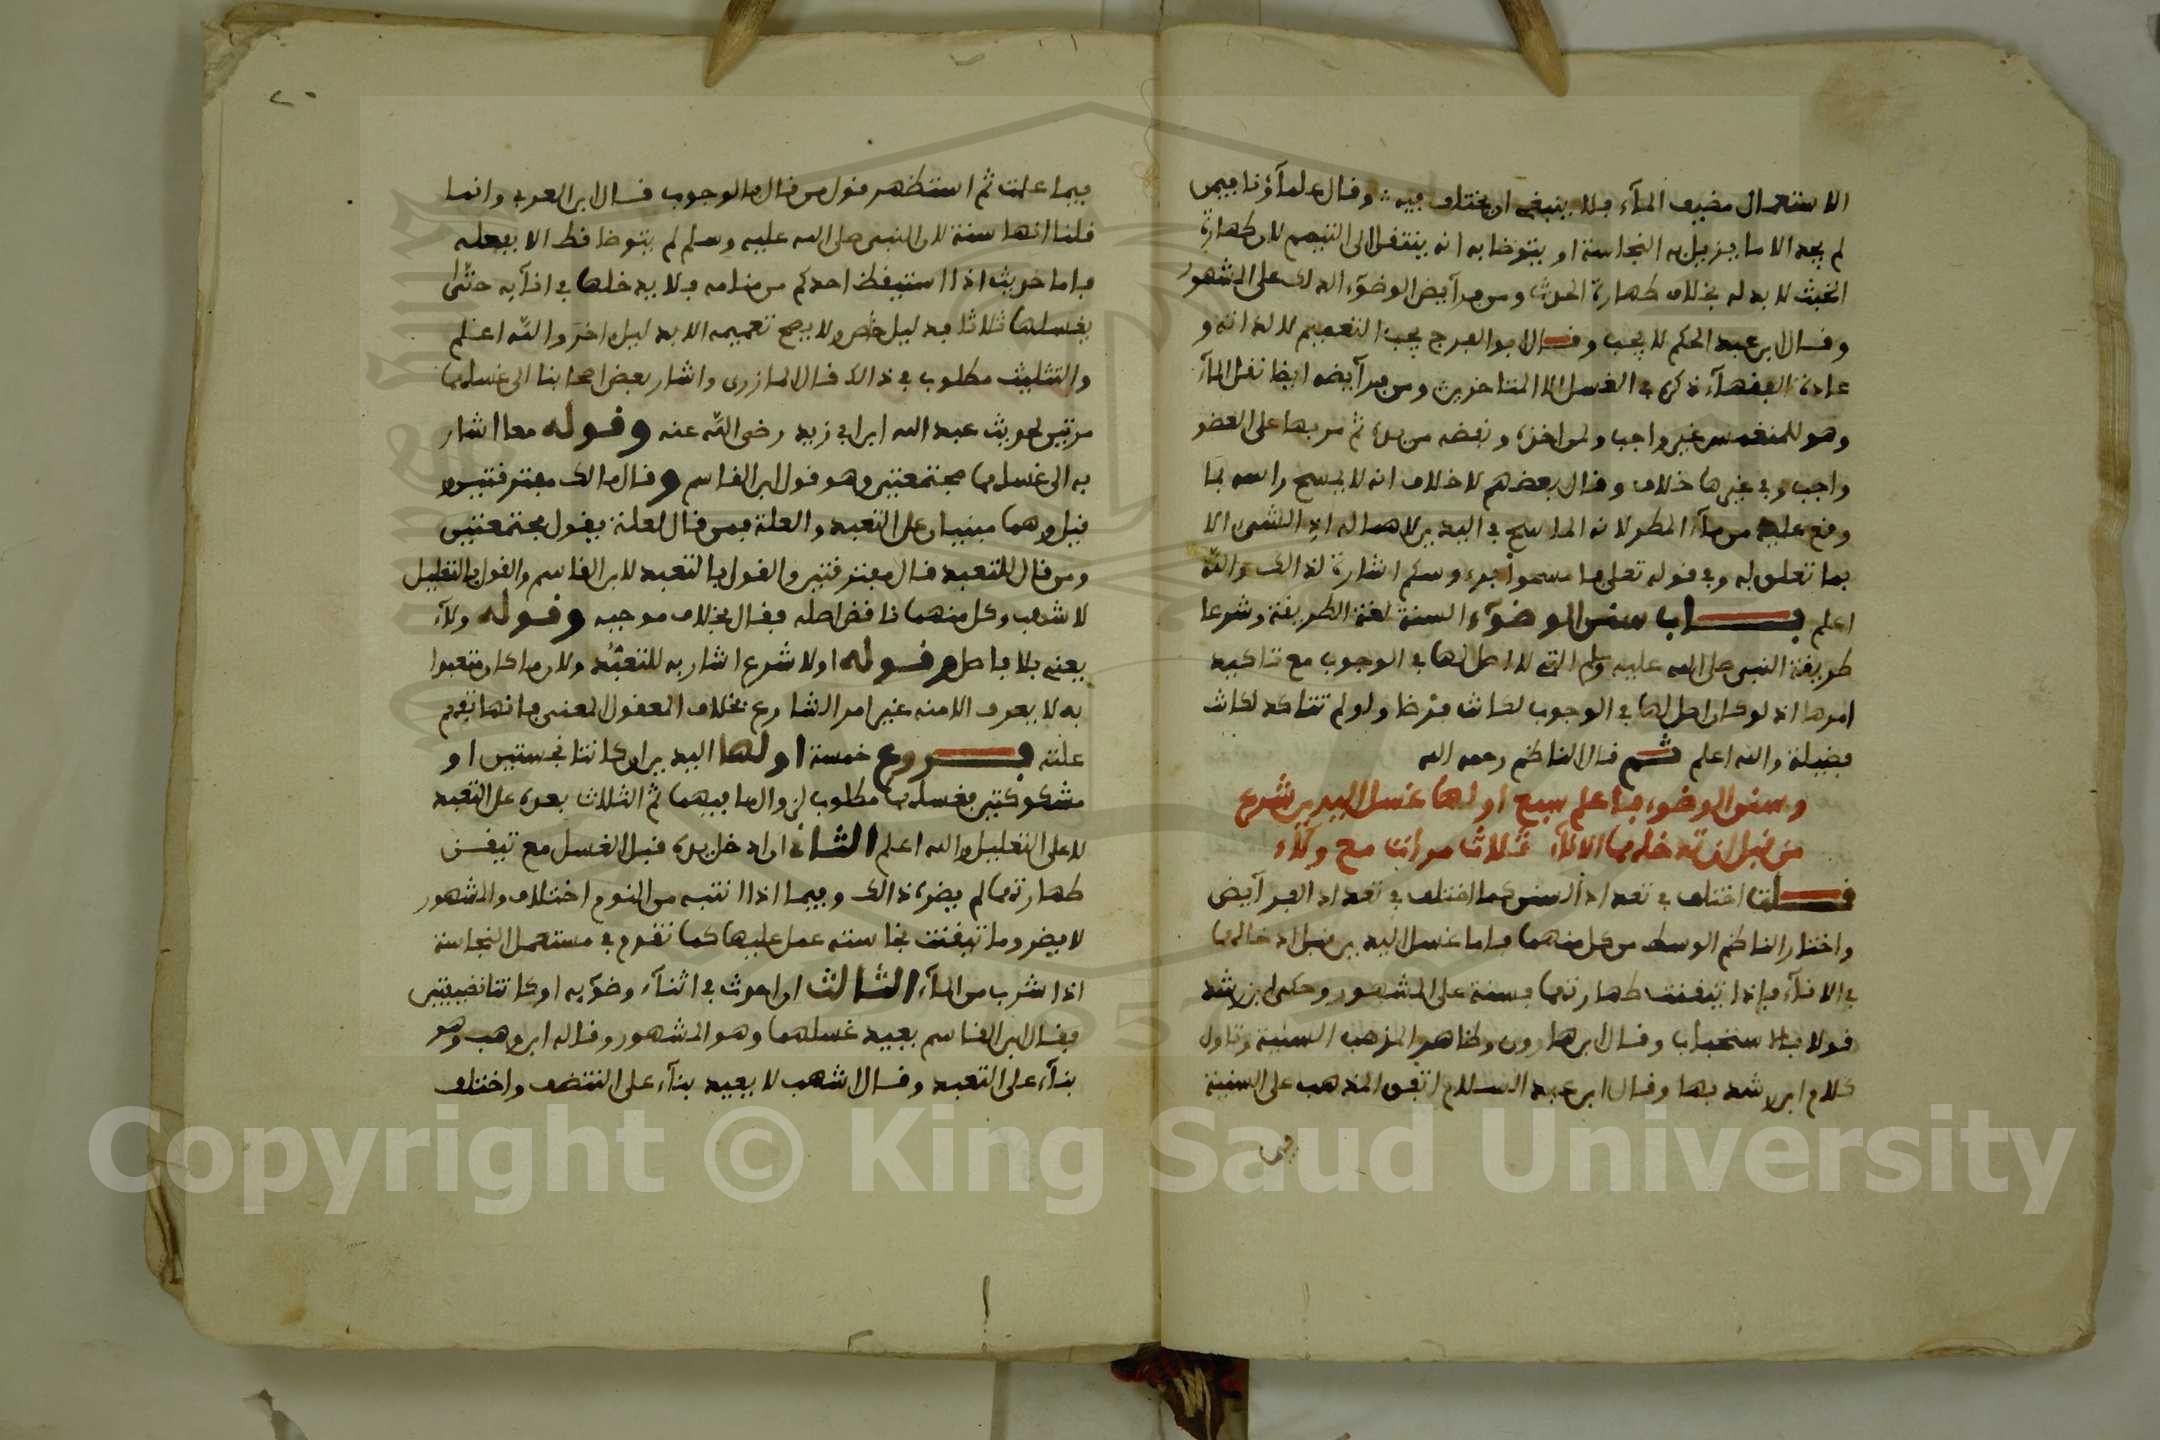 الاستعمال مضيف الماء فلا ينبغي ان يختلف فيه وقال علماؤنا فيمن
لم يجد الا ما يزيل به النجاسة او يتوضا به انه ينتقل الى التيمم لان طهارة
الخبث لا بد له بخلاف طهارة الحدث ومن فرآيض الوضوء الدلك على المشهور
وقال ابن عبد الحكم لا يجب وقال ابو الفرج يجب التعميم لا لذاته و
عادة الفقهآء ذكره في الغسل الا المتاخرين ومن فرآيضه ايضا نقل المآء
وهو للمنغمس غير واجب ولمن اخذه ونفضه من يده ثم مر بها على العضو
واجب وفي غيرها خلاف وقال بعضهم لا خلاف انه لا يمسح راسه بما
وقع عليه من مآء المطر لانه الماسح في اليدين لا هما له اذ الشي الا
بما تعلق له وفي قوله تعلى فامسحوا برءوسكم اشارة لذالك والله
اعلم بـاب سنن الوضوء السنة لغة الطريقة وشرعا
طريقة النبي صلى الله عليه وسلم التي لا اصل لها في الوجوب مع تاكيد
امرها اذ لو كان اصل لها في الوجوب لكانت فرضا ولو لم تتاكد لكانت
فضيلة والله اعلم ثم قال الناظم رحمه الله
وسنن الوضوء فاعلم سبع اولها غسل اليدين شرع
من قبل ان تدخلهما الانآ ثلاث مرات مع ولاء
قلت اختلف في تعداد السنن كما اختلف في تعداد الفرآيض
واختار الناظم الوسط من كل منهما فاما غسل اليدين قبل ادخالهما
في الانآء فإذا تيقنت طهارتهما فسنة على المشهور وحكى ابن رشد
قولا بالاستحباب وقال ابن هارون وظاهر المذهب السنية وتاول
كلام ابن رشد بها وقال ابن عبد السلام اتفق المذهب على السنية
في
٢٠
فيما علمت ثم استظهر قول من قال بالوجوب قال ابن العربي وانما
قلنا انها سنة لان النبي صلى الله عليه وسلم لم يتوضا قط الا بفعله
فاما حديث اذا استيقظ احدكم من منامه فلا يدخلها في انآيه حتى
يغسلها ثلاثا فدليل خاص ولا يصح تعميمه الا بدليل اخر والله اعلم
والتثليث مطلوب في ذالك قال المازري واشار بعض اصحابنا الى غسلهما
مرتين لحديث عبد الله ابن ابي زيد رضي الله عنه وقوله معا اشار
به الى غسلهما مجتمعتين وهو قول ابن القاسم وقال مالك مفترقتين
قيل وهما مبنيان على التعبد والعلة فمن قال لعلة يقول مجتمعتين
ومن قال للتعبد قال مفترقتين والقول بالتعبد لابن القاسم والقول بالتعليل
لاشهب وكل منهما ناقض اصله فقال بخلاف موجبه وقوله ولآء
يعني بلا فاصل وقوله اولا شرع اشار به للتعبد ولان ما كان متعبدا
به لا يعرف الا منه غير امر الشارع بخلاف المعقول المعنى فانها تفهم
علته فـروع خمسة اولها اليدين ان كانتا نجستين او
مشكوكتين فغسلهما مطلوب لزوال ما فيهما ثم الثلاث بعده على التعبد
لا على التعليل والله اعلم الثاني ان ادخل يده قبل الغسل مع تيقن
طهارتهما لم يضره ذالك وفيما اذا انتبه من النوم اختلاف والمشهور
لا يضر وما تيقنت نجاسته عمل عليها كما تقدم في مستعمل النجاسة
اذا شرب من المآء الثالث ان احدث في اثنآء وضوئه او كانتا نضيفتين
فقال ابن القاسم يعيد غسلهما وهو المشهور وقاله ابن وهب وهو
بنآء على التعبد وقال اشهب لا يعيد بنآء على التنضف واختلف
Copyright © King Saud University